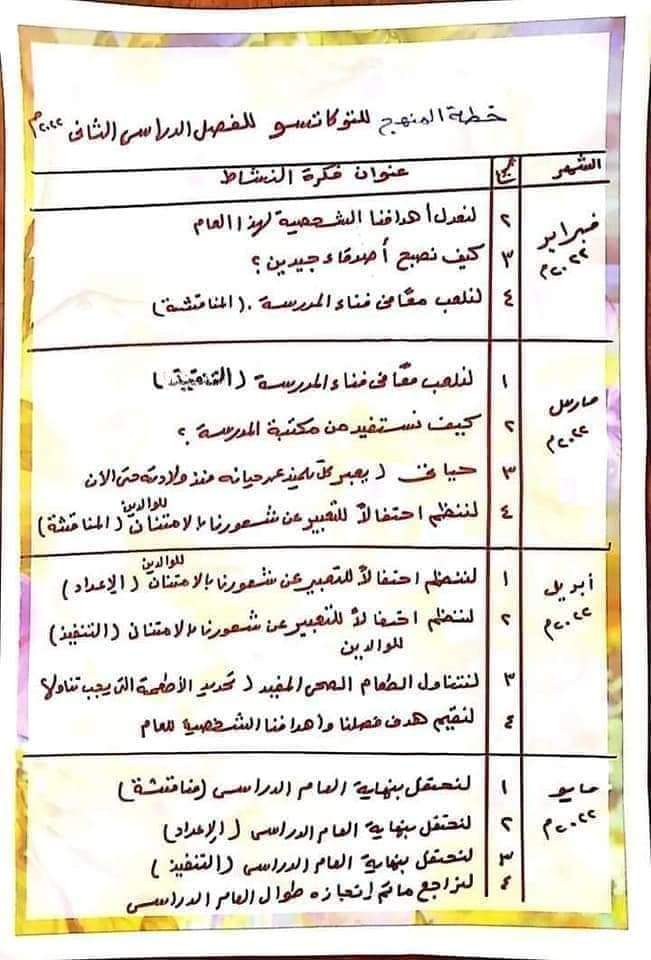 خطة المنهج للتوكاتسو للفصل الدراسى الثانى ٢٠٢٢م
الشهر عنوان فكرة النشاط
فبراير ٢٠٢٢م
٢ لنعدل أهدافنا الشخصية لهذا العام
٣ كيف نصبح أصدقاء جيدين؟
٤ لنلعب معًا فى فناء المدرسة. (المناقشة)
مارس ٢٠٢٢م
١ لنلعب معًا فى فناء المدرسة (التنفيذ)
٢ كيف نستفيد من مكتبة المدرسة؟
٣ حياتى (يعبر كل تلميذ عن حياته منذ ولادته حتى الآن
٤ لننظم احتفالاً للتعبير عن شعورنا بالامتنان للوالدين (المناقشة)
أبريل ٢٠٢٢م
١ لننظم احتفالاً للتعبير عن شعورنا بالامتنان للوالدين (الإعداد)
٢ لننظم احتفالاً للتعبير عن شعورنا بالامتنان (التنفيذ)
للوالدين
٣ لنتناول الطعام الصحى المفيد (تحديد الأطعمة التى يجب تناولها
٤ لنقيم هدف فصلنا وأهدافنا الشخصية للعام
مايو ٢٠٢٢م
١ لنحتفل بنهاية العام الدراسى (مناقشة)
٢ لنحتفل بنهاية العام الدراسى (الإعداد)
٣ لنحتفل بنهاية العام الدراسى (التنفيذ)
٤ لنراجع ماتم إنجازه طوال العام الدراسى